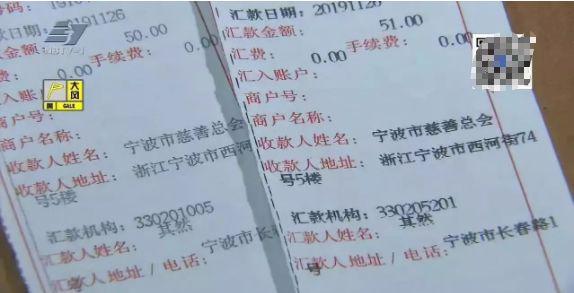 号码：191
20191126
汇款金额： 50.00
汇费： 0.00 手续费： 0.00
汇入账户：
商户号：
商户名称：
收款人姓名： 宁波市慈善总会
收款人地址： 浙江宁波市西河
号5楼
汇款机构： 330201005
汇款人姓名： 其然
汇款人地址 / 电话： 宁波市长
号
汇款日期： 20191126
汇款金额： 51.00
汇费： 0.00 手续费： 0.00
汇入账户：
商户号：
商户名称：
收款人姓名： 宁波市慈善总会
收款人地址： 浙江宁波市西河街74
号5楼
汇款机构： 330205201
汇款人姓名： 其然
汇款人地址 / 电话： 宁波市长春路1
号
NBTV-1
大风
黄
GALE